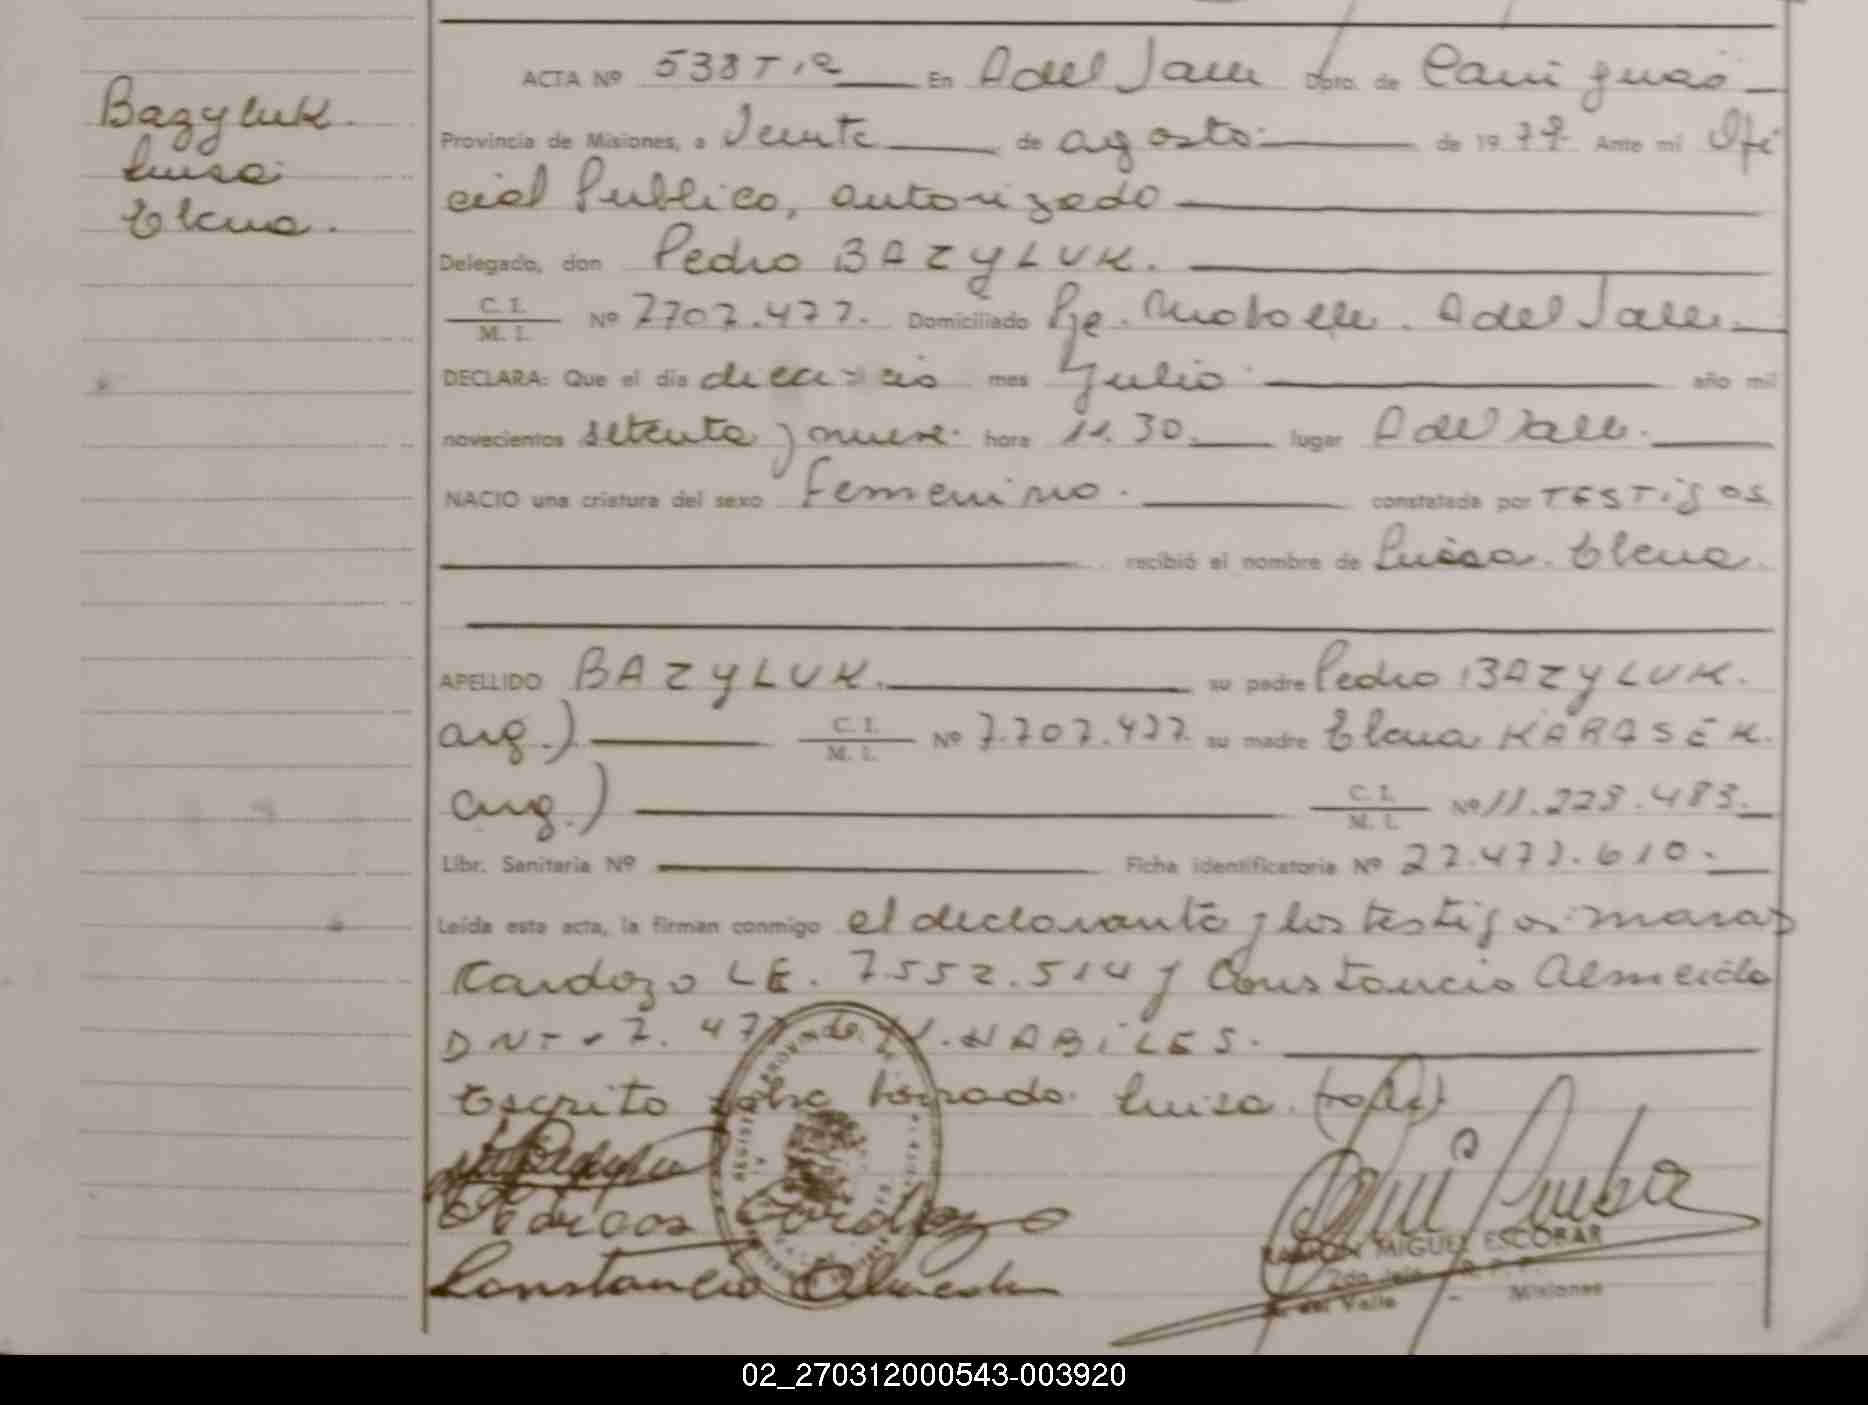 Bazyluk.
Luisa
Elena.
ACTA Nº 538 T 12 En A del Valle Dpto. de Cainguas
Provincia de Misiones, a Veinte de agosto de 1979 Ante mi Ofi
cial Publico, autorizado
Delegado, don Pedro BAZYLUK.
C. I.
M. I. Nº 7707.477. Domiciliado Pje. A del Valle
DECLARA: Que el día mes Julio año mil
novecientos setenta y nueve hora 11.30. lugar A del Valle.
NACIO una criatura del sexo Femenino. constatada por TESTigos
recibió el nombre de Luisa Elena
APELLIDO BAZYLUK. su padre Pedro BAZYLUK.
arg.) C. I.
M. I. Nº 7.707.477 su madre Elena KARASEK.
arg.) C. I.
M. I. Nº 11.223.483.
Libr. Sanitaria Nº Ficha identificatoria Nº 27.477.610.
Leída esta acta, la firman conmigo el declarante y los testigos
Cardozo LE. 7552.514 y Constancio Almeida
HABiLES.
Escrito sobre borrado Luisa.
Marcos Cardozo
Constancio Almeida
RAMON MIGUEL ESCOBAR
A. del Valle - Misiones
02_270312000543-003920